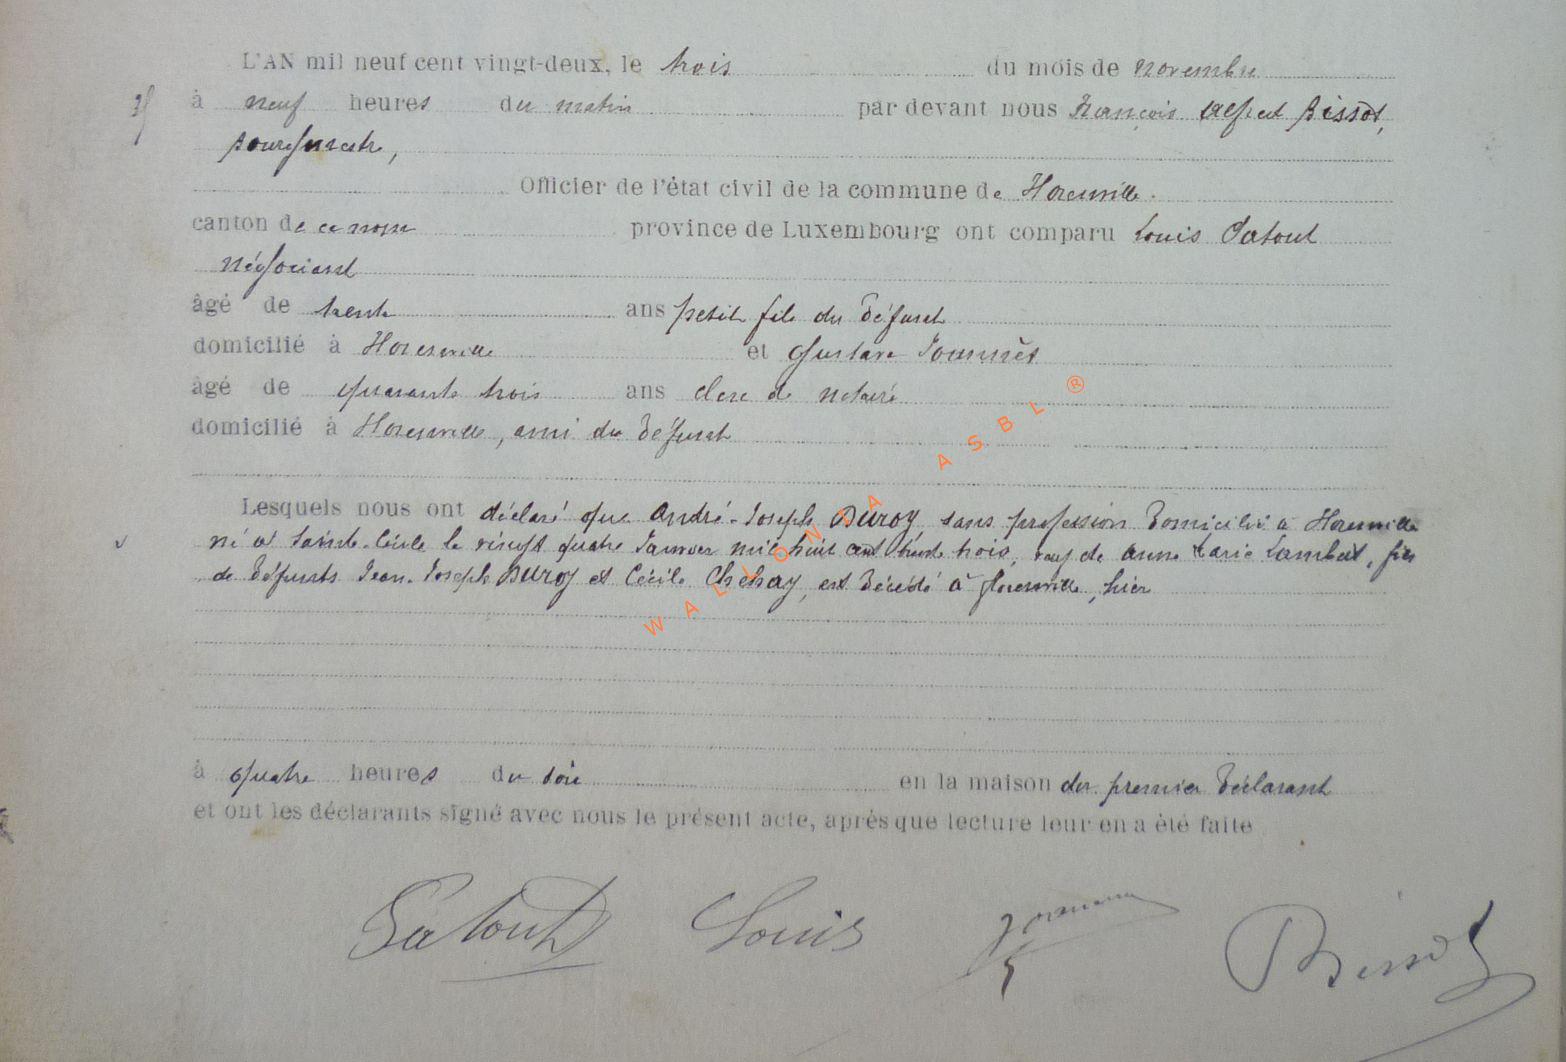 L'AN mil neuf cent vingt-deux, le trois du mois de novembre
à neuf heures du matin par devant nous François Alfred Bissot,
bourgmestre,
Officier de l'état civil de la commune de Florenville
canton de ce nom province de Luxembourg ont comparu Louis Gatout
négociant
âgé de trente ans petit fils du défunt
domicilié à Florenville et Gustave
âgé de quarante trois ans clerc de notaire
domicilié à Florenville, ami du défunt
Lesquels nous ont déclaré que André-Joseph Buroy sans profession domicilié à Florenville
né à Sainte-Cécile le vingt quatre Janvier mil huit cent trente trois, veuf de Anne Marie Lambert, fils
de défunts Jean-Joseph Buroy et Cécile Chehay, est décédé à Florenville, hier
WALLONIA ASBL ®
à quatre heures du soir en la maison du premier déclarant
et ont les déclarants signé avec nous le présent acte, après que lecture leur en a été faite
Gatout Louis Bissot